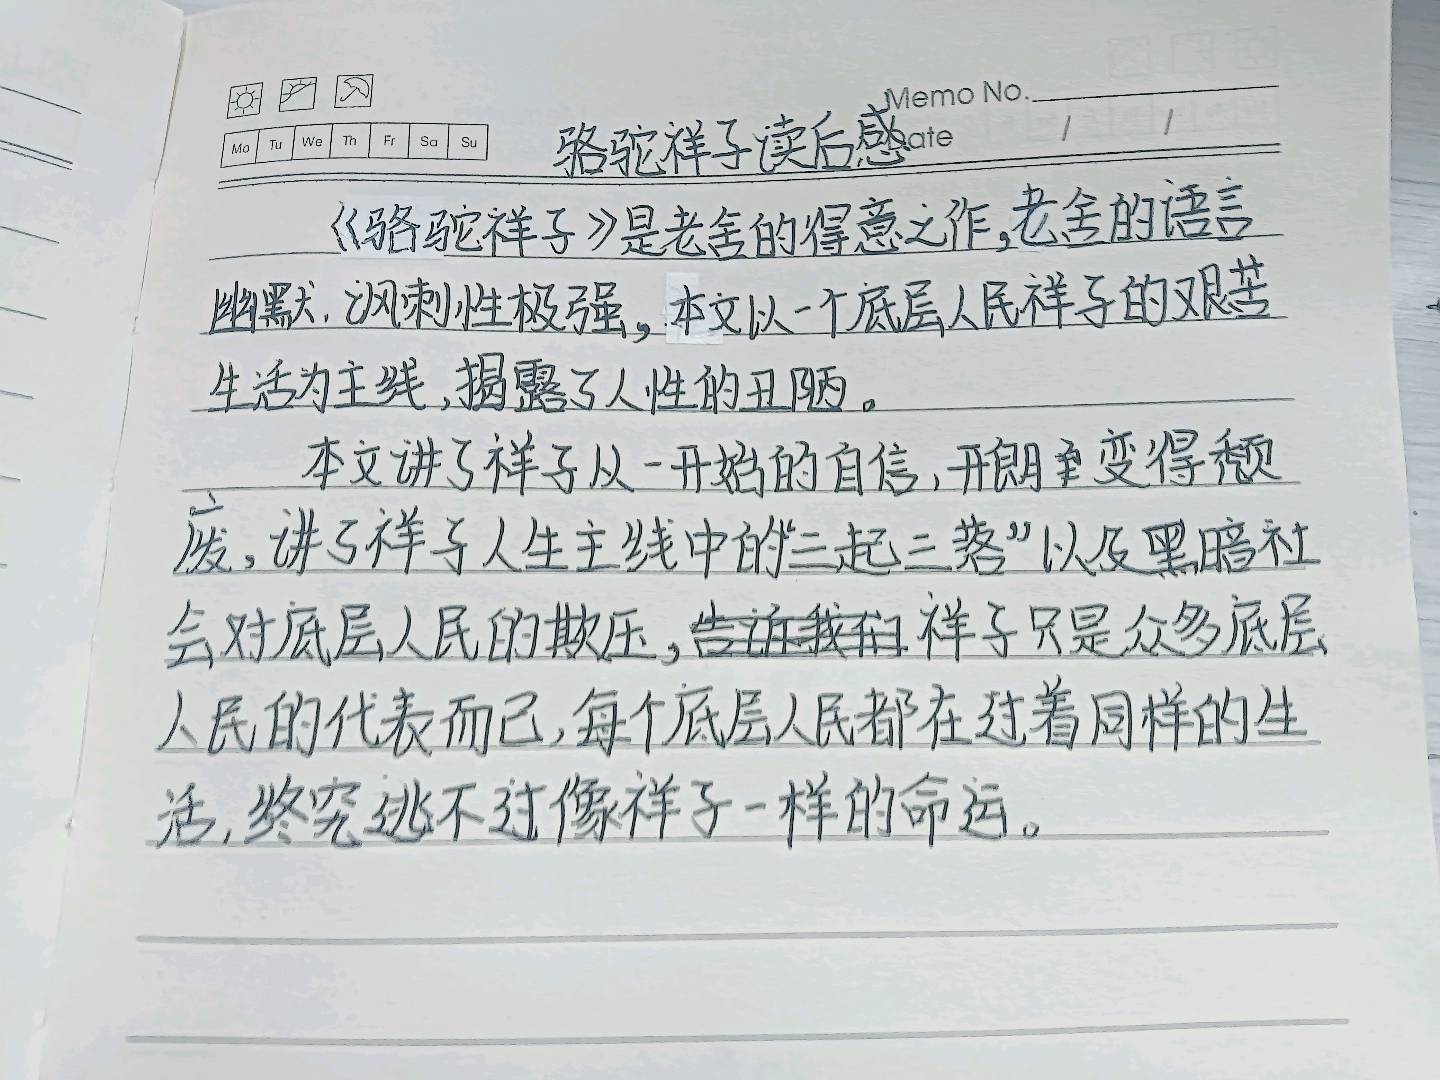 Memo No.
Mo Tu We Th Fr Sa Su
Date / /
骆驼祥子读后感
《骆驼祥子》是老舍的得意之作,老舍的语言
幽默,讽刺性极强,本文以一个底层人民祥子的艰苦
生活为主线,揭露了人性的丑陋。
本文讲了祥子从一开始的自信,开朗到变得颓
废,讲了祥子人生主线中的“三起三落”以及黑暗社
会对底层人民的欺压,告诉我们祥子只是众多底层
人民的代表而已,每个底层人民都在过着同样的生
活,终究逃不过像祥子一样的命运。